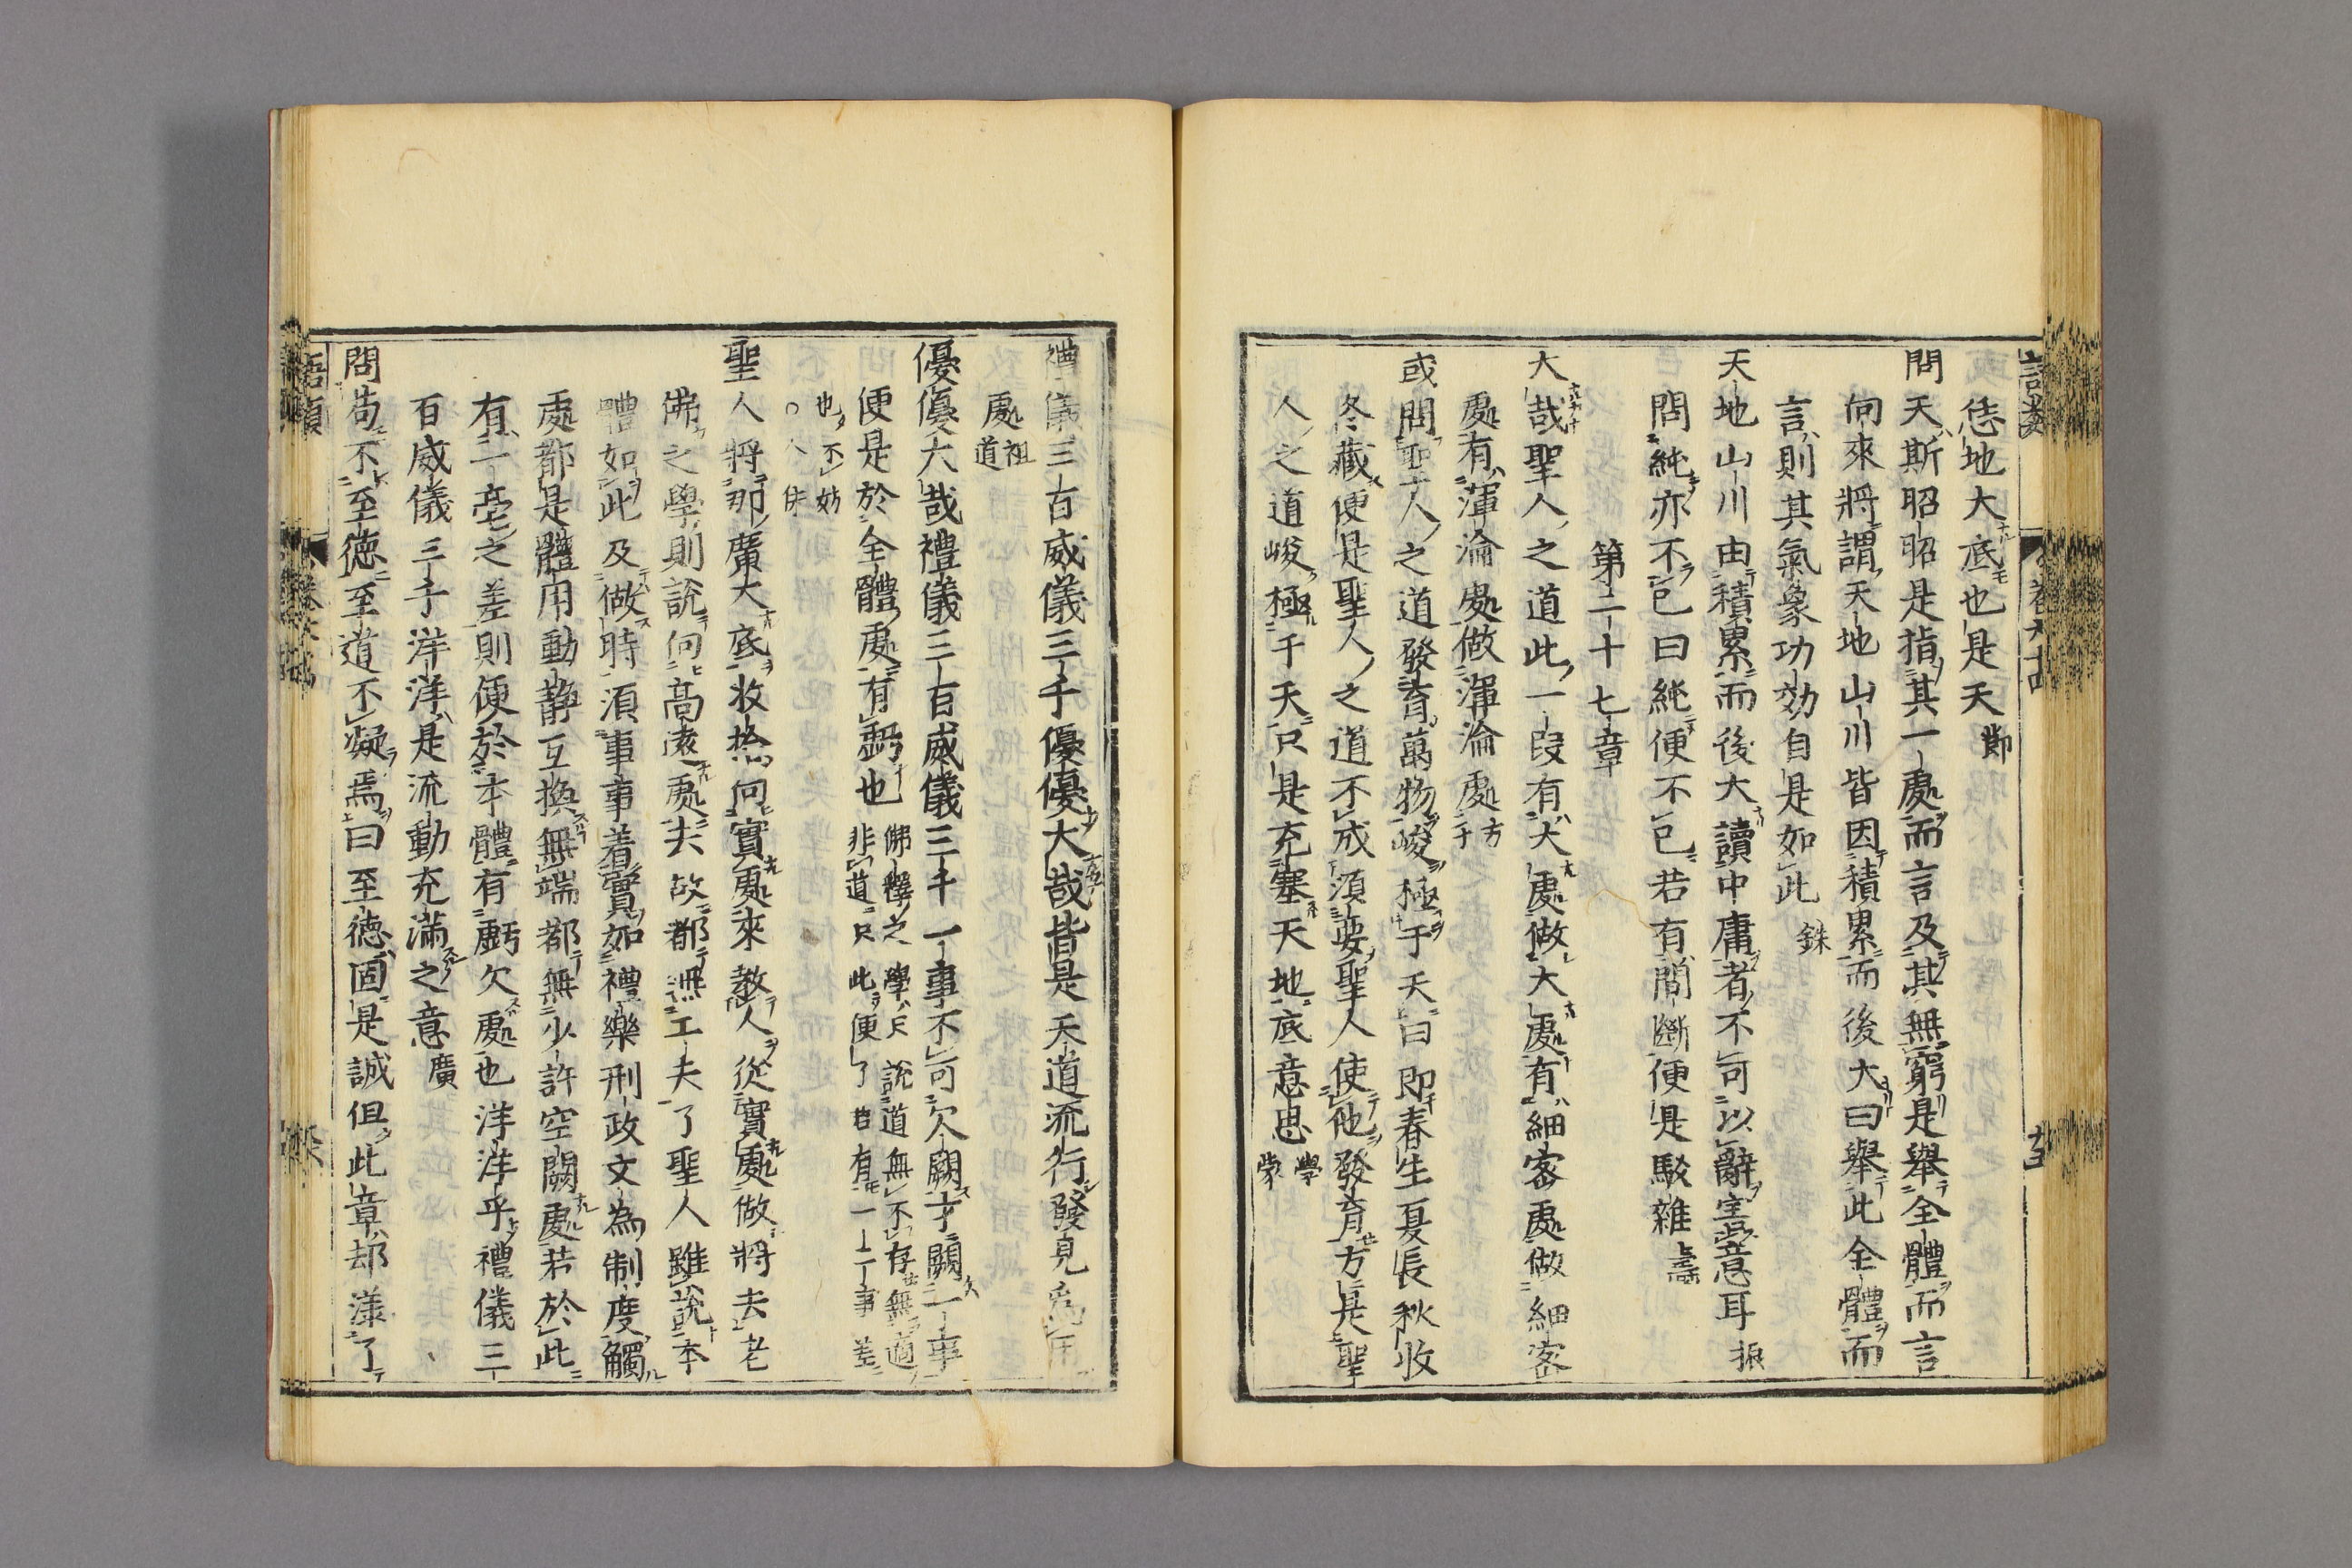 恁地大底也是天 節
問天斯昭昭是指其一處而言及其無窮是舉全體而言
向來將謂天地山川皆因積累而後大曰舉此全體而
言則其氣象功効自是如此 銖
天地山川由積累而後大讀中庸者不可以辭害意耳 振
問純亦不已曰純便不已若有間斷便是駁雜 壽
第二十七章
大哉聖人之道此一段有大處做大處有細密處做細密
處有渾淪處做渾淪處 方子
或問聖人之道發育萬物峻極于天曰即春生夏長秋收
冬藏便是聖人之道不成須要聖人使他發育方是聖
人之道峻極于天只是充塞天地底意思 學蒙
禮儀三百威儀三千優優大哉皆是天道流行發見為用
處 祖道
優優大哉禮儀三百威儀三千一事不可欠闕才闕一事
便是於全體處有虧也 佛釋之學只說道無不存無適
非道只此便了若有一二事差
也不妨
人傑
聖人將那廣大底收拾向實處來教人從實處做將去老
佛之學則說向高遠處去故都無工夫了聖人雖說本
體如此及做時須事事着實如禮樂刑政文為制度觸
處都是體用動静互換無端都無少許空闕處若於此
有一毫之差則便於本體有虧欠處也洋洋乎禮儀三
百威儀三千洋洋是流動充滿之意 廣
問苟不至徳至道不凝焉曰至徳固是誠但此章却漾了